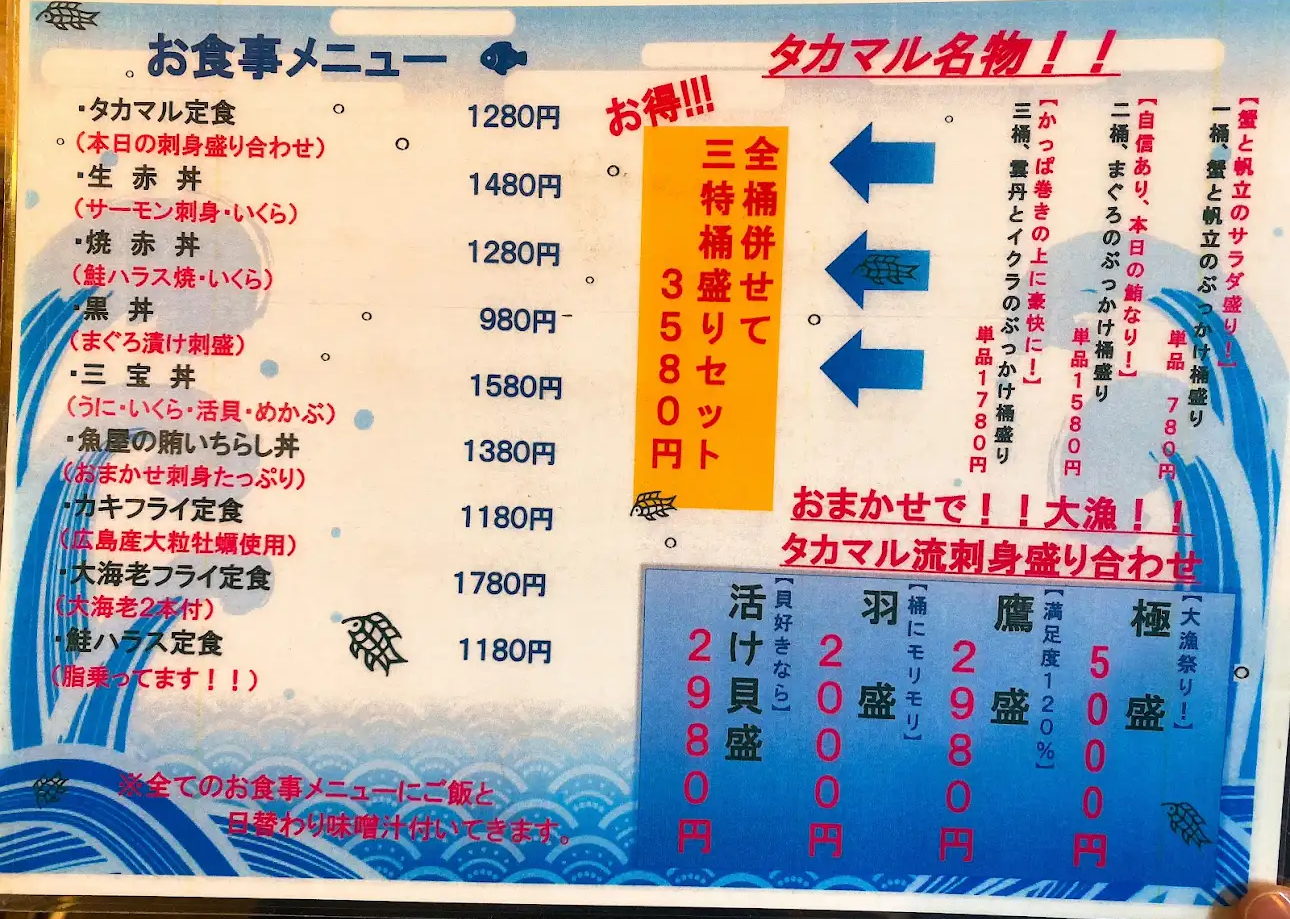 お食事メニュー
・タカマル定食 1280円
(本日の刺身盛り合わせ)
・生 赤 丼 1480円
(サーモン刺身・いくら)
・焼 赤 丼 1280円
(鮭ハラス焼・いくら)
・黒 丼 980円
(まぐろ漬け刺盛)
・三 宝 丼 1580円
(うに・いくら・活貝・めかぶ)
・魚屋の賄いちらし丼 1380円
(おまかせ刺身たっぷり)
・カキフライ定食 1180円
(広島産大粒牡蠣使用)
・大海老フライ定食 1780円
(大海老2本付)
・鮭ハラス定食 1180円
(脂乗ってます!!)
※全てのお食事メニューにご飯と
日替わり味噌汁付いてきます。
タカマル名物!!
【蟹と帆立のサラダ盛り!】
一桶、蟹と帆立のぶっかけ桶盛り
単品 780円
【自信あり、本日の鮪なり!】
二桶、まぐろのぶっかけ桶盛り
単品1580円
【かっぱ巻きの上に豪快に!】
三桶、雲丹とイクラのぶっかけ桶盛り
単品1780円
お得!!!
全桶併せて
三特桶盛りセット
3580円
おまかせで!!大漁!!
タカマル流刺身盛り合わせ
【大漁祭り!】
極 盛
5000円
【満足度120%】
鷹 盛
2980円
【桶にモリモリ】
羽 盛
2000円
【貝好きなら】
活け貝盛
2980円